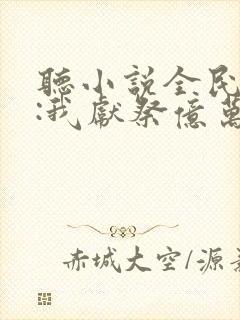 聽小説全民
:我獻祭億萬
赤城大空/源